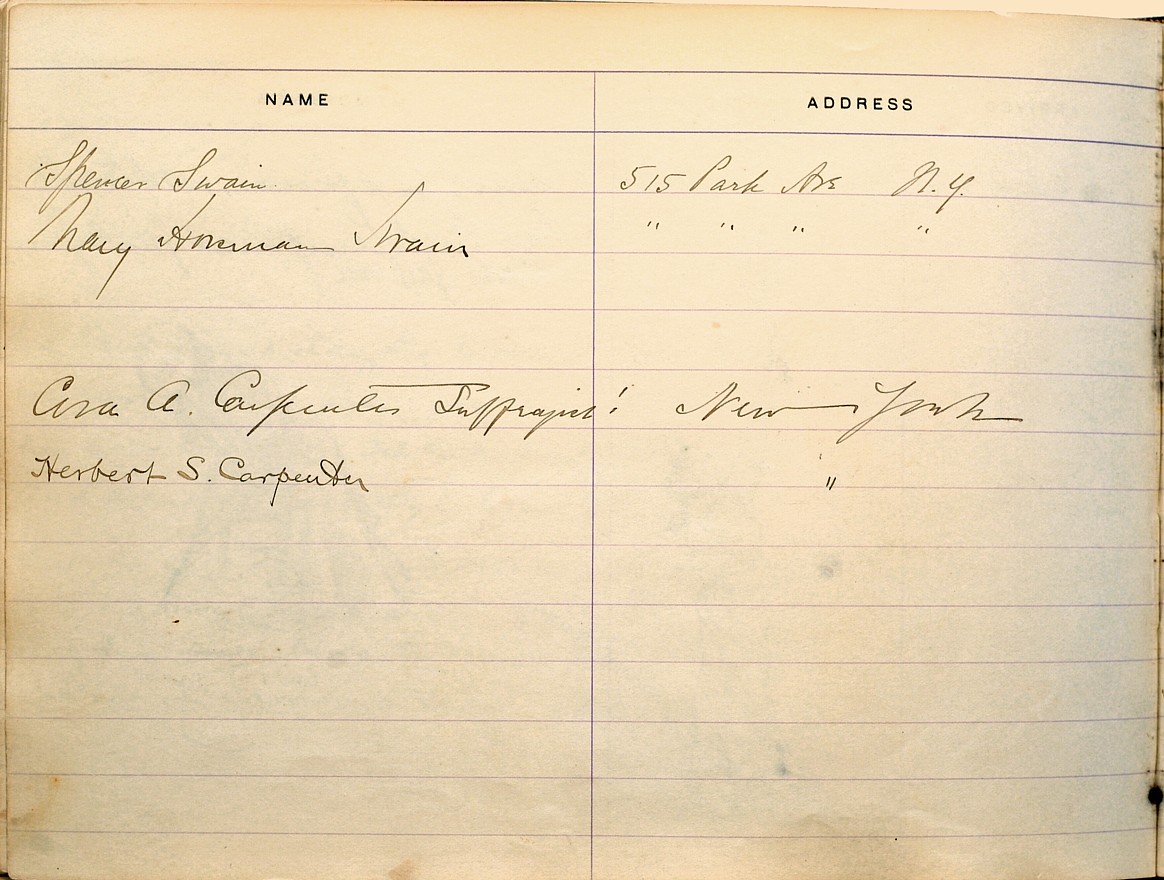 NAME ADDRESS
Spencer Swain 515 Park Ave N.Y.
Mary Swain " " " "
Cora A. Carpenter Suffragist! New York
Herbert S. Carpenter "